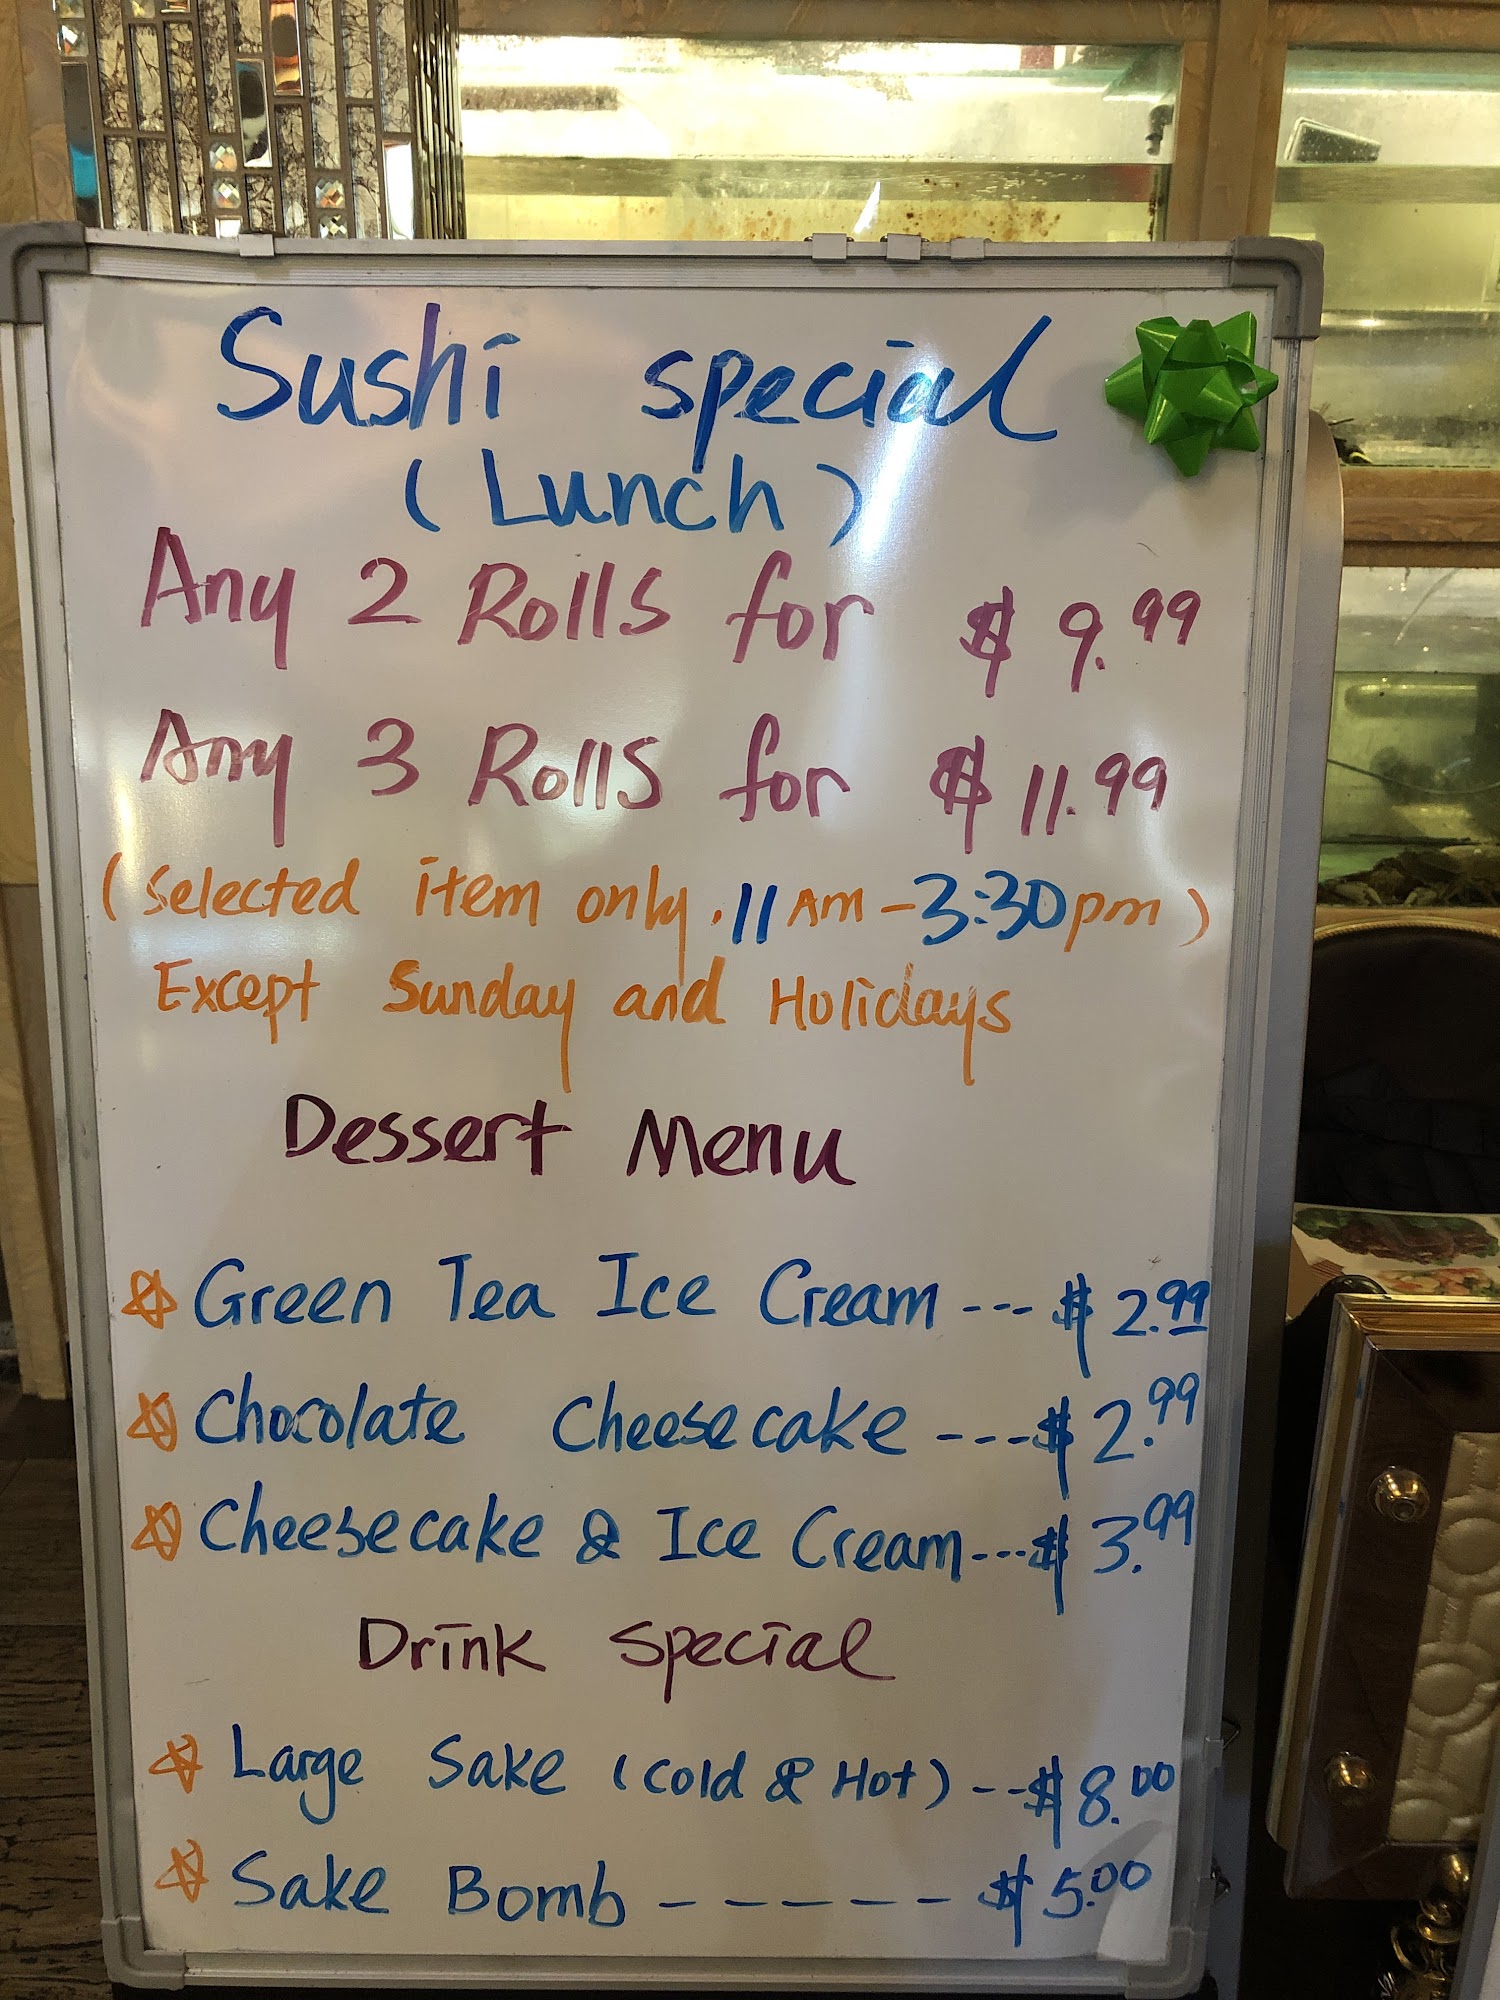 Sushi special
(Lunch)
Any 2 Rolls for $9.99
Any 3 Rolls for $11.99
(Selected item only. 11AM-3:30pm)
Except Sunday and Holidays
Dessert Menu
Green Tea Ice Cream --- $2.99
Chocolate Cheesecake --- $2.99
Cheesecake & Ice Cream --- $3.99
Drink Special
Large Sake (Cold & Hot) -- $8.00
Sake Bomb ------ $5.00